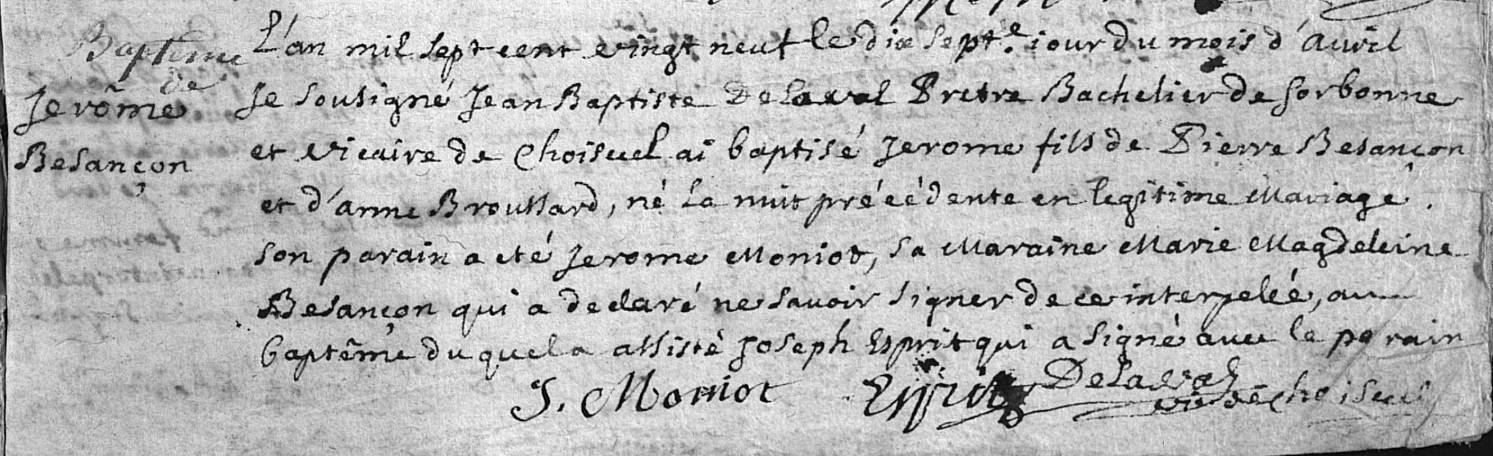 Baptême
de
Jerôme
Besançon
L'an mil sept cent vingt neuf le dix sept.e jour du mois d'avril
Je sousigné Jean Baptiste Delaval Pretre Bachelier de sorbonne
et vicaire de Choiseul ai baptisé Jerome fils de Pierre Besançon
et d'anne Broussard, né la nuit précédente en legitime Mariage.
son parain a eté Jerome Moniot, sa Maraine Marie Magdeleine
Besançon qui a declaré ne savoir signer de ce interpelée, au
baptême duquel a assisté Joseph Esprit qui a signé avec le parain
J. Moniot Esprit Delaval
vic de choiseul